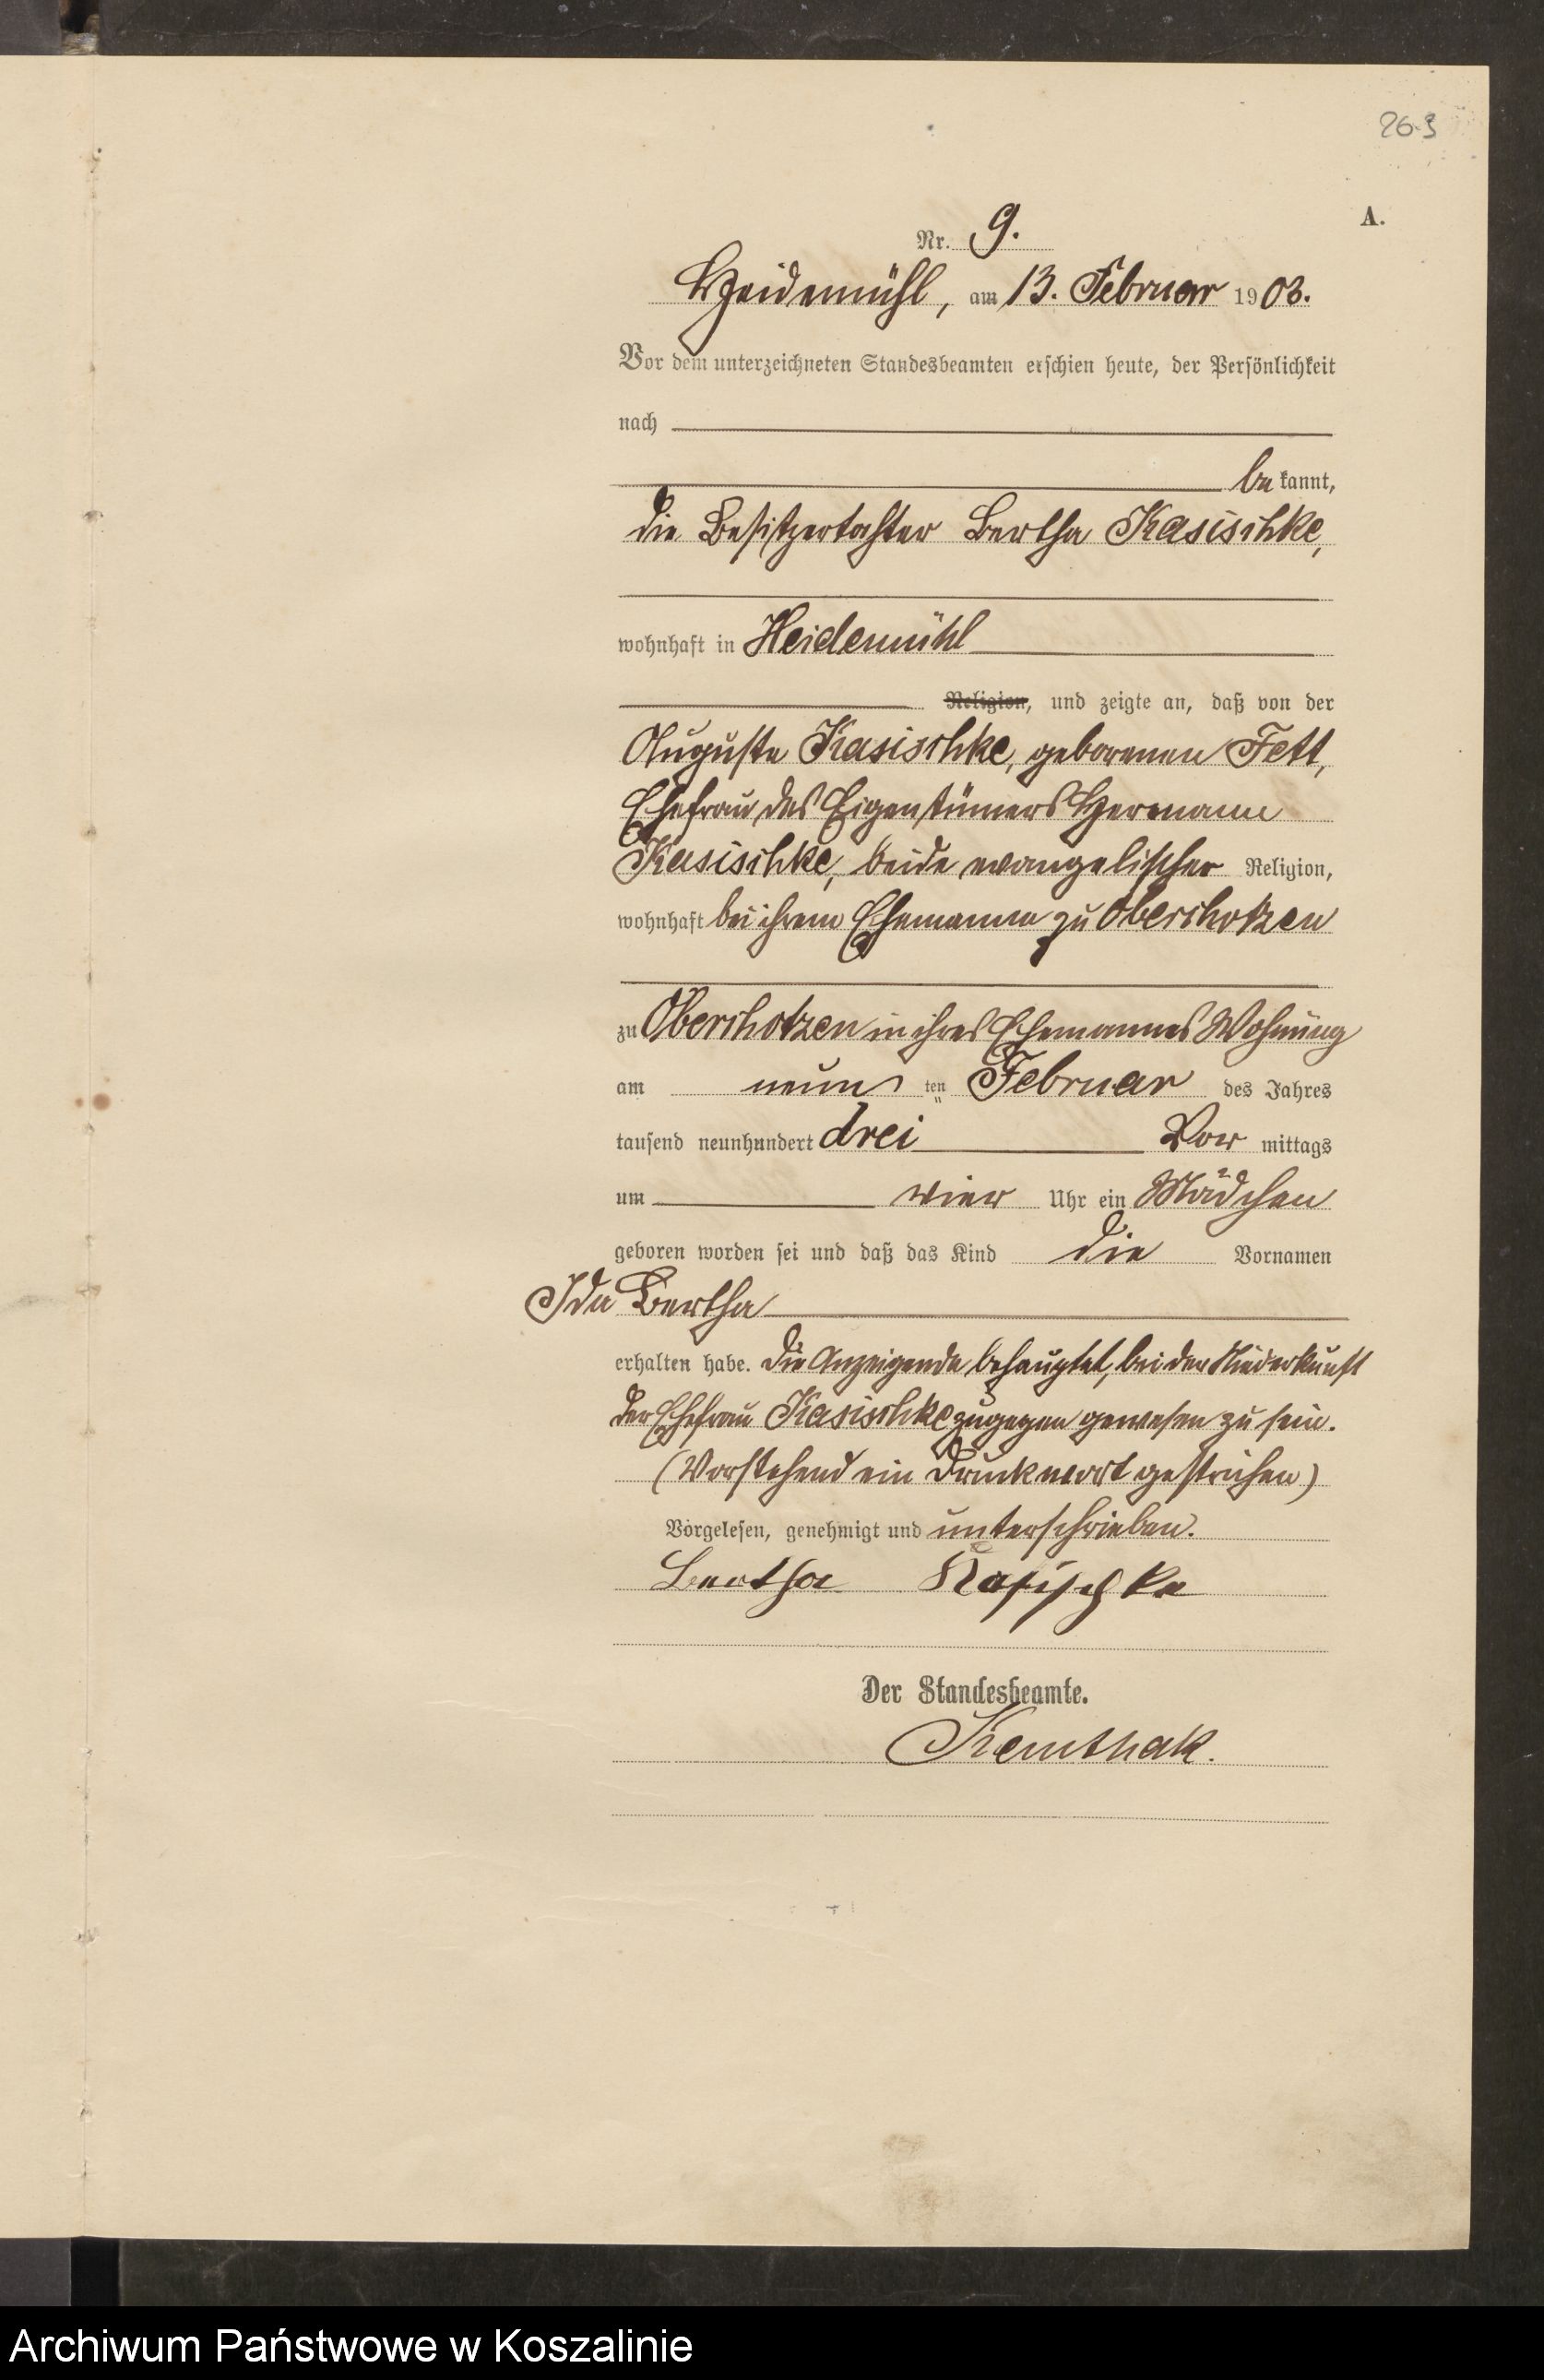 263
A.
Nr. 9.
Heidemühl, am 13. Februar 1903.
Vor dem unterzeichneten Standesbeamten erschien heute, der Persönlichkeit
nach
be kannt,
die Besitzertochter Bertha Kasischke,
wohnhaft in Heidemühl
Religion, und zeigte an, daß von der
Auguste Kasischke, geborenen Fett,
Ehefrau des Eigentümers Hermann
Kasischke, beide evangelischer Religion,
wohnhaft bei ihrem Ehemanne zu Oberschotzen
zu Oberschotzen in ihres Ehemannes Wohnung
am neun ten Februar des Jahres
tausend neunhundert drei Vor mittags
um vier Uhr ein Mädchen
geboren worden sei und daß das Kind die Vornamen
Ida Bertha
erhalten habe. Die Anzeigende behauptet, bei der Niederkunft
der Ehefrau Kasischke zugegen gewesen zu sein.
(Vorstehend ein Druckwort gestrichen)
Vorgelesen, genehmigt und unterschrieben.
Bertha Kasischke
Der Standesbeamte.
Archiwum Państwowe w Koszalinie